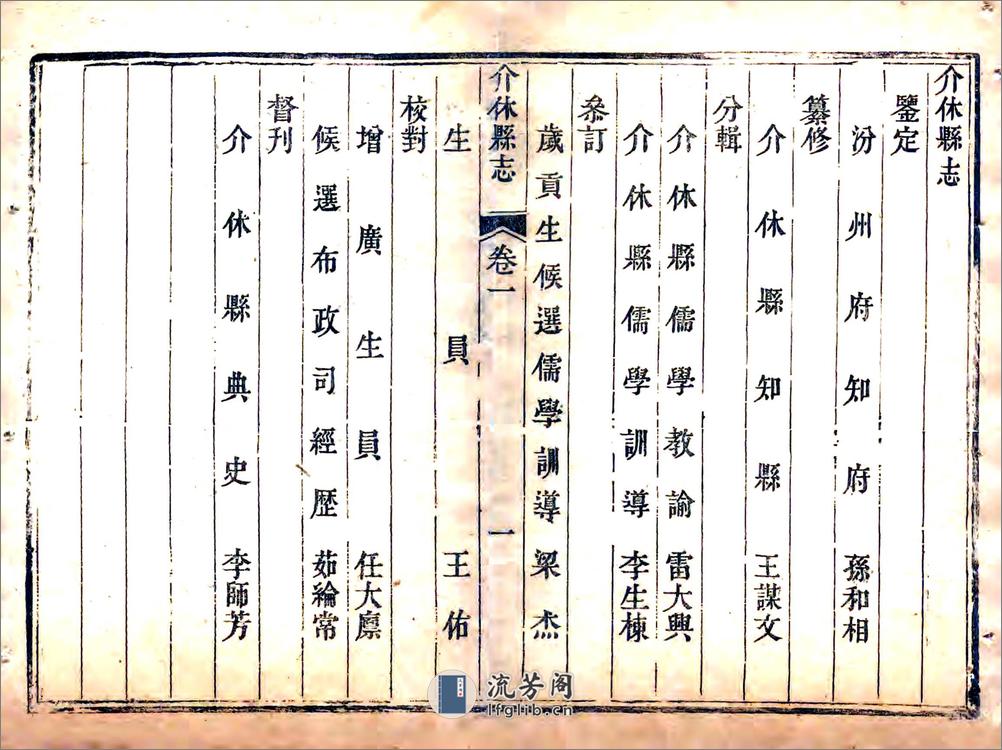 介休縣志
鑒定
汾州府知府孫和相
纂修
介休縣知縣王謀文
分輯
介休縣儒學教諭雷大興
介休縣儒學訓導李生棟
叅訂
歲貢生候選儒學訓導梁杰
介休縣志 卷一 一
生員王佑
校對
增廣生員任大廪
候選布政司經歷茹綸常
督刊
介休縣典史李師芳
流芳阁
lfglib.cn